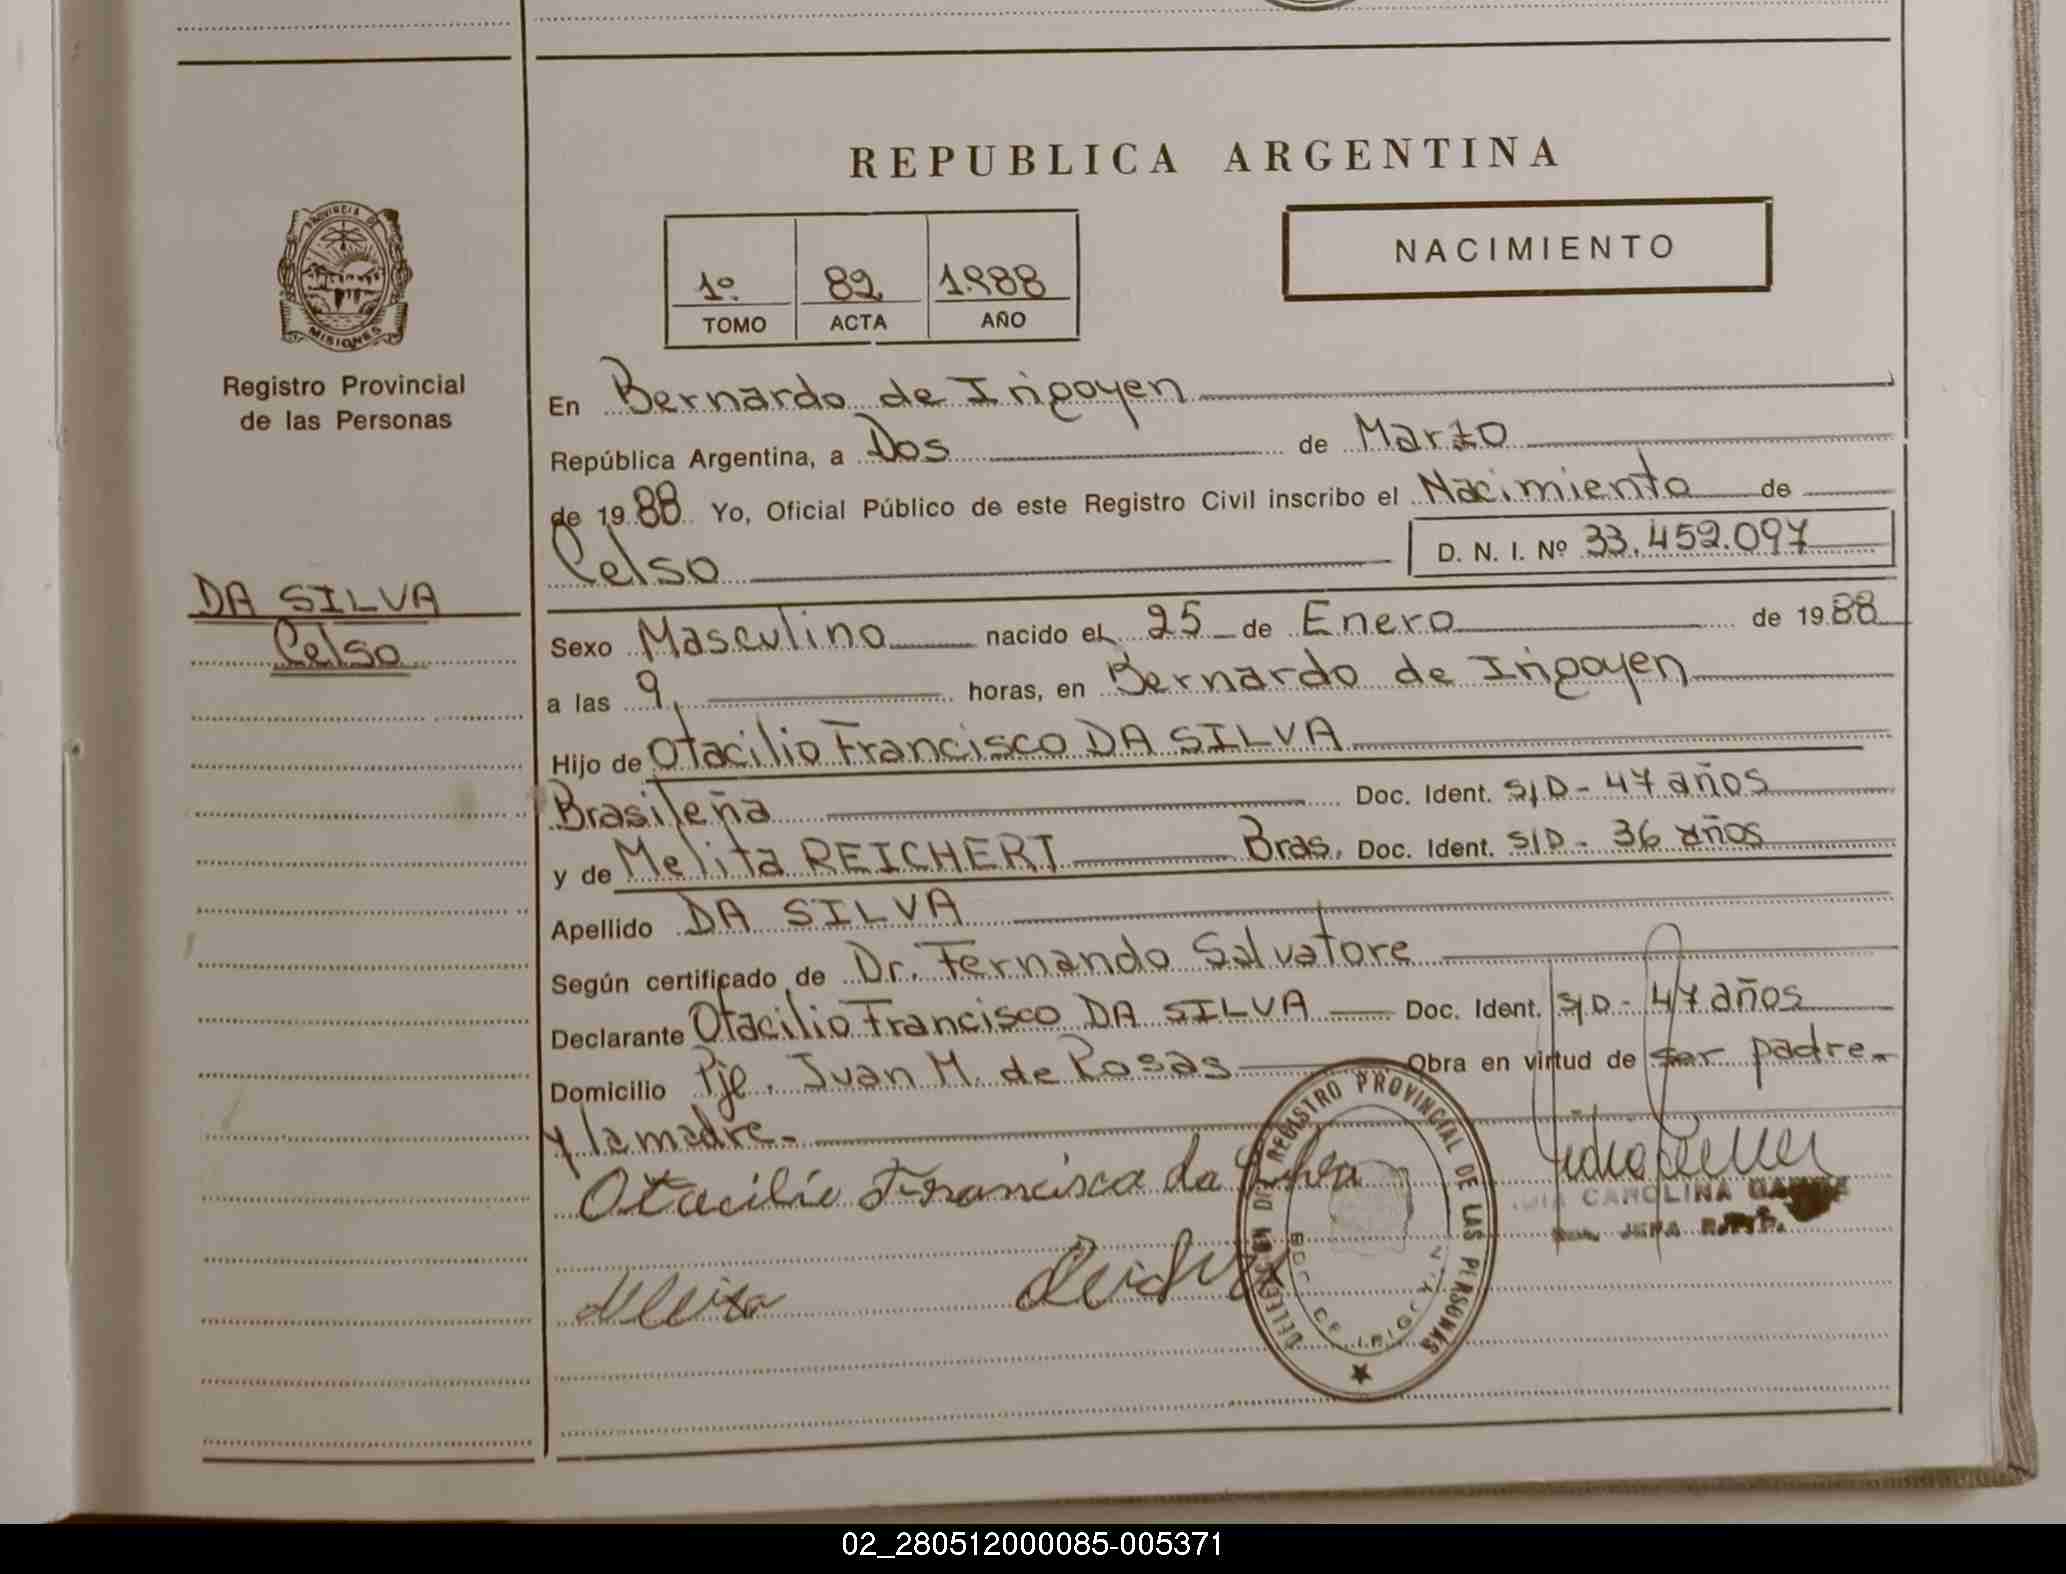 REPUBLICA ARGENTINA
NACIMIENTO
1º 82 1988
TOMO ACTA AÑO
PROVINCIA DE
MISIONES
Registro Provincial
de las Personas
DA SILVA
Celso
En Bernardo de Irigoyen
República Argentina, a Dos de Marzo
de 1988 Yo, Oficial Público de este Registro Civil inscribo el Nacimiento de
Celso D. N. I. Nº 33.452.097
Sexo Masculino nacido el 25 de Enero de 1988
a las 9, horas, en Bernardo de Irigoyen
Hijo de Otacilio Francisco DA SILVA
Brasileña Doc. Ident. S/D - 47 años
y de Melita REICHERT Bras. Doc. Ident. S/D - 36 años
Apellido DA SILVA
Según certificado de Dr. Fernando Salvatore
Declarante Otacilio Francisco DA SILVA Doc. Ident. S/D - 47 años
Domicilio Pje. Juan M. de Rosas Obra en virtud de ser padre.-
y la madre.-
Otacilio Francisco da Silva
CAROLINA
DELEGACION DEL REGISTRO PROVINCIAL DE LAS PERSONAS
02_280512000085-005371